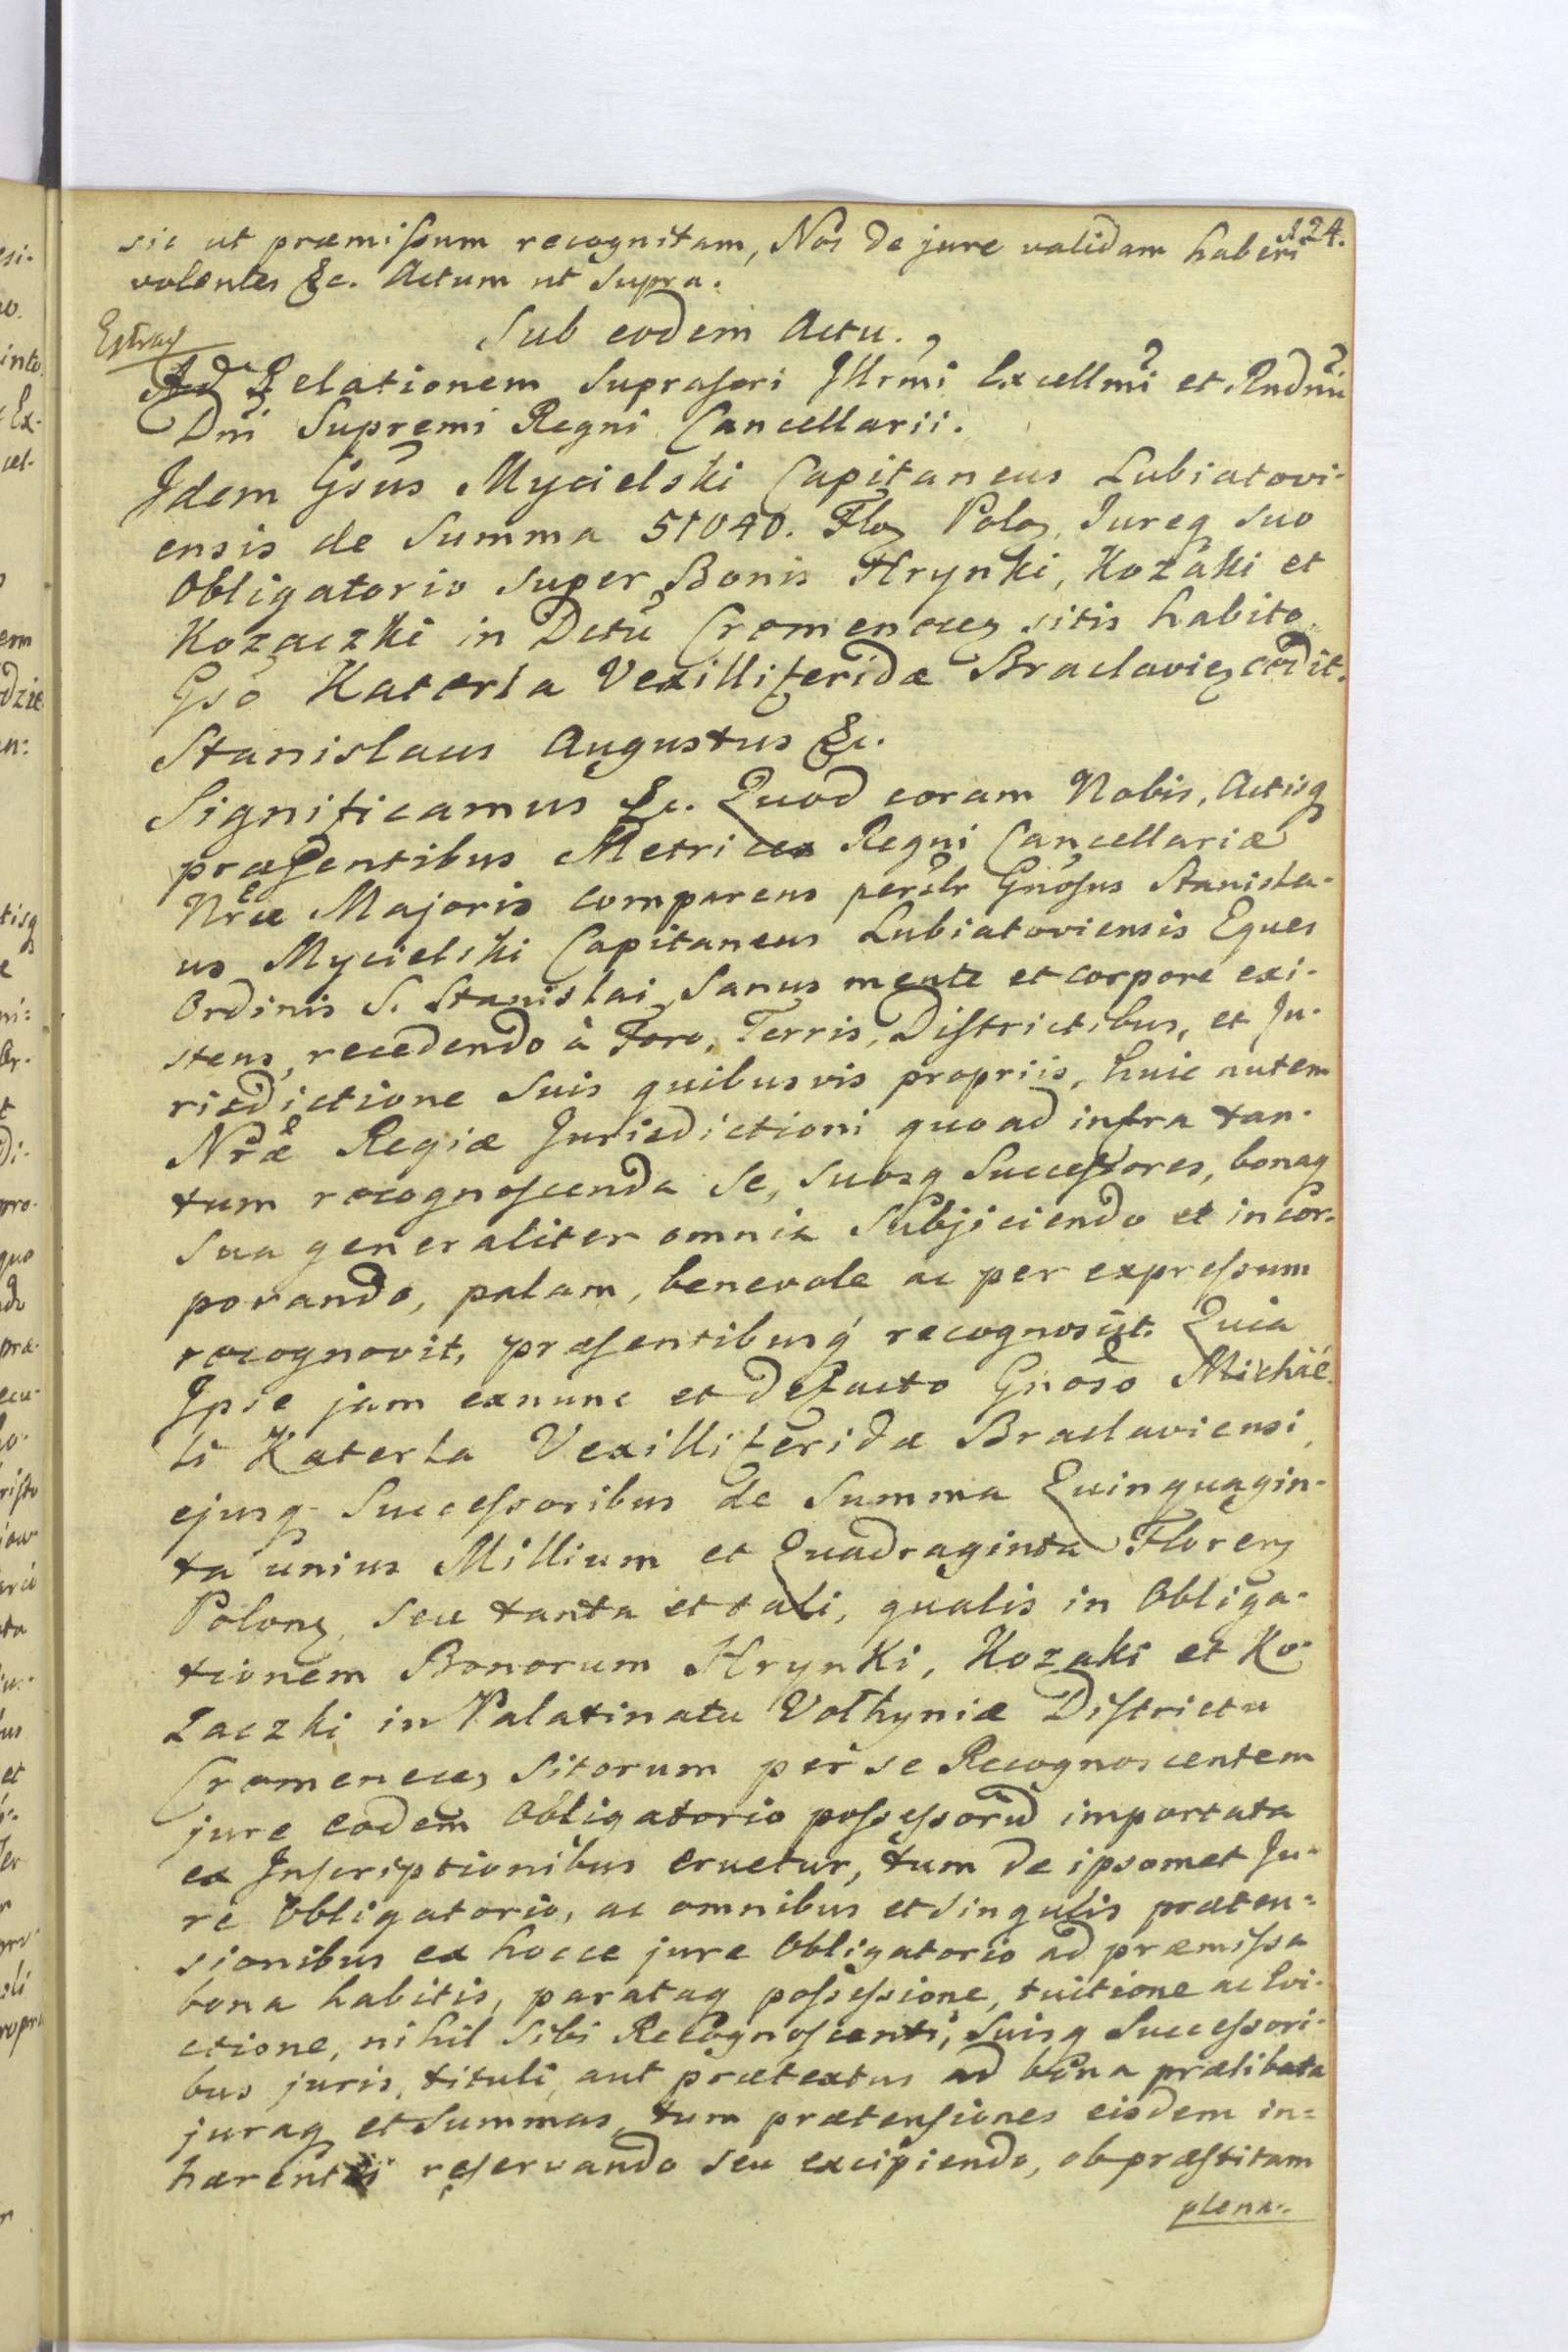 124.
sic ut præmissum recognitam, Nos de jure validam haberi
volentes &c. Actum ut supra.
Sub eodem Actu.
Extrad
Ad Relationem suprascri Illrmi Excellmi et Rndmi
Dni Supremi Regni Cancellarii.
Idem Gsus Mycielski Capitaneus Lubiatovi-
ensis de Summa 51040. Flo Polo, Jureq suo
Obligatorio super Bonis Hrynki, Kozaki et
Kozaczki in Dctu Cremenecen sitis habito
Gso Katerla Vexilliferidæ Braclavien cedit.
Stanislaus Augustus &c.
Significamus &c. Quod coram Nobis, Actisq
præsentibus Metrices Regni Cancellariæ
Nræ Majoris comparens persler Gnosus Stanisla-
us Mycielski Capitaneus Lubiatoviensis Eques
Ordinis S. Stanislai, Sanus mente et corpore exi-
stens, recedendo à Foro, Terris, Districtibus, et Ju-
risdictione suis quibusvis propriis, huic autem
Nræ Regiæ Jurisdictioni quoad infra tan-
tum recognoscenda se, suosq Successores, bonaq
sua generaliter omnia subjiciendo et incor-
porando, palam, benevole ac per expressum
recognovit, præsentibusq recognoscit. Quia
Ipse jam exnunc et defacto Gnoso Michaë-
li Katerla Vexilliferidæ Braclaviensi,
ejusq Successoribus de Summa Quinquagin-
ta unius Millium et Quadraginta Floren
Polon, seu tanta et tali, qualis in Obliga-
tionem Bonorum Hrynki, Kozaki et Ko-
zaczki in Palatinatu Volhyniæ Districtu
Cremenecen sitorum per se Recognoscentem
jure eodem Obligatorio possessorũ importata
ex Inscriptionibus eruetur, tum de ipsomet Ju-
re Obligatorio, ac omnibus et singulis præten-
sionibus ex hocce jure Obligatorio ad præmissa
bona habitis, parataq possessione, tuitione ac Evi-
ctione, nihil sibi Recognoscenti, suisq Successori-
bus juris, tituli, aut prætextus ad bona prælibata
juraq et Summas, tum prætensiones eisdem in-
hærentes reservando seu excipiendo, ob præstitam
plena-